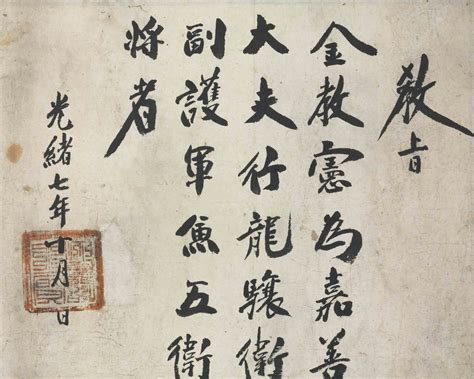 敎旨
金敎憲為嘉善
大夫行龍驤衛
副護軍兼五衛
將者
光緒七年十月 日